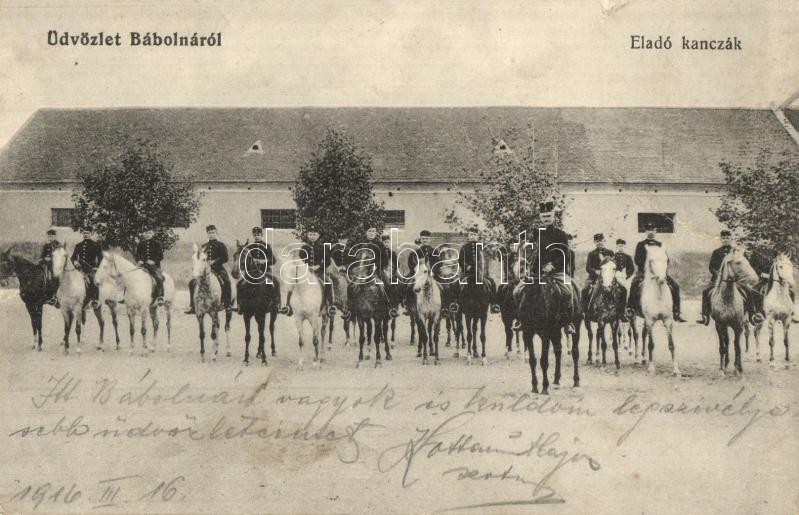 Üdvözlet Bábolnáról
Eladó kanczák
darabanth
Itt Bábolnán vagyok is küldöm legszivélye
sebb üdvözleteimet
1916 III. 16.